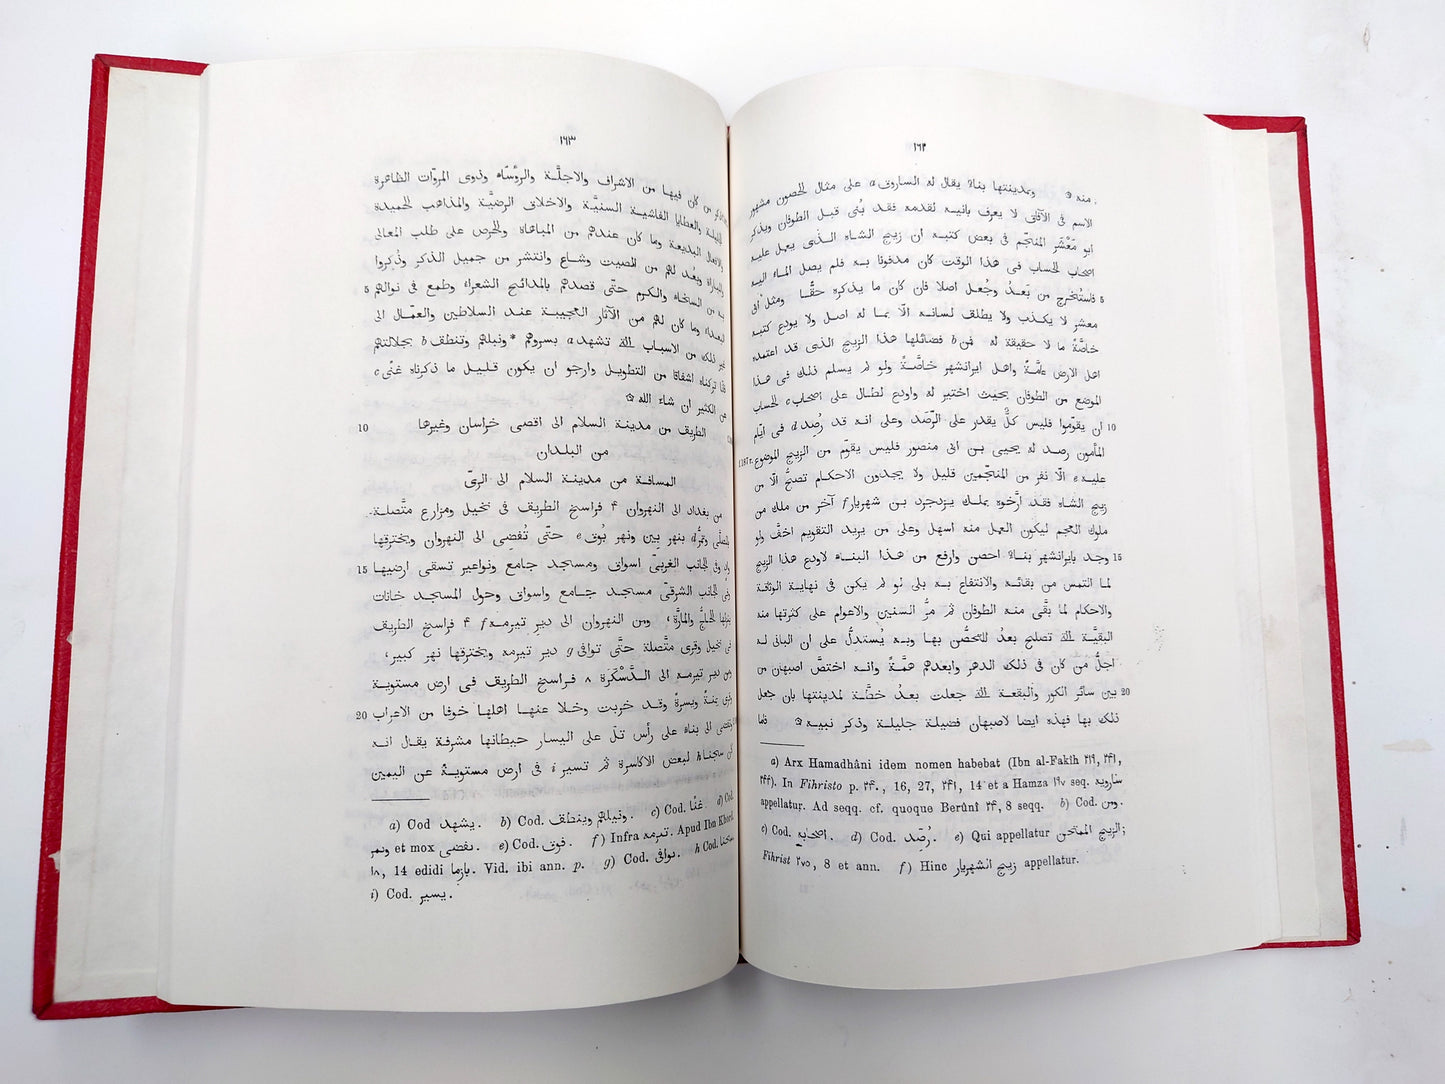 ١٦٢
منه ۞ وبمدينتها بناء يقال له الساروق a على مثال الحصون مشهور
الاسم فى الآفاق لا يعرف بانيه لقدمه فقد بُنى قبل الطوفان ويذكر
ابو مَعْشَر المنجّم فى بعض كتبه ان زيج الشاه الذى يعمل عليه
اصحاب الحساب فى هذا الوقت كان مدفونا به فلم يصل الماء اليه
5 فاستُخرج من بَعدُ وجُعل اصلا فان كان ما يذكره حقّا ومثل أبى
معشر لا يكذب ولا يطلق لسانه الّا بما له اصل ولا يودع كتبه
خاصّةً ما لا حقيقة له فمن b فضائلها هذا الزيج الذى قد اعتمده
اهل الارض عامّةً واهل ايرانشهر خاصّةً ولو لم يسلم ذلك فى هذا
الموضع من الطوفان بحيث اختير له واودع لطال على اصحاب c الحساب
10 أن يقوّموا فليس كلٌّ يقدر على الرَصَد وعلى انه قد رُصِد d فى ايّام
المأمون رصد له يحيى بن ابى منصور فليس يقوّم من الزيج الموضوع 187r.
عليه e الّا نفر من المنجّمين قليل ولا يجدون الاحكام تصحُّ الّا من
زيج الشاه فقد ارَّخوه بملك يزدجرد بن شهريار f آخر من ملك من
ملوك العجم ليكون العمل منه اسهل وعلى من يريد التقويم اخفّ ولو
15 وجد بايرانشهر بناء احصن وارفع من هذا البناء لاودع هذا الزيج
لما التمس من بقائه والانتفاع به بلى لو لم يكن فى نهاية الوثاقة
والاحكام لما بقَّى منه الطوفان ثم مرُّ السنين والاعوام على كثرتها منه
البقيّة الّتى تصلح بعدُ للتحصُّن بها وبه يُستدلُّ على ان البانى له
اجلُّ من كان فى ذلك الدهر وابعدهم همّةً وانه اختصَّ اصبهان من
20 بين سائر الكور والبقعة الّتى جعلت بعدُ خطّة لمدينتها بان جعل
ذلك بها فهذه ايضا لاصبهان فضيلة جليلة وذكر نبيه ۞ فاما
a) Arx Hamadhâni idem nomen habebat (Ibn al-Fakîh ٢١٩, ٢٤١,
٢٤٤). In Fihristo p. ٢٤٠, 16, 27, ٢٤١, 14 et a Hamza ١٩٧ seq. سارويه
appellatur. Ad seqq. cf. quoque Berûnî ٢٤, 8 seqq. b) Cod. ومن.
c) Cod. اصحابه. d) Cod. رُصِّد. e) Qui appellatur الزيج الممتحن;
Fihrist ٢٧٥, 8 et ann. f) Hinc زيج الشهريار appellatur.
١٦٣
من كان فيها من الاشراف والاجلّة والرؤساء وذوى المروّات الظاهرة
والعطايا الفاشية السنيّة والاخلاق الرضيّة والمذاهب الحميدة
والافعال البديعة وما كان عندهم من المباهاة والحرص على طلب المعالى
وبعُد لهم من الصيت وشاع وانتشر من جميل الذكر وذُكروا
5 به من السخاء والكرم حتّى قصدهم بالمدائح الشعراء وطمع فى نوالهم
البعداء وما كان لهم من الآثار العجيبة عند السلاطين والعمّال الى
غير ذلك من الاسباب الّتى تشهد a بسروهم *ونبلهم وتنطق b بجلالتهم
فانا تركناه اشفاقا من التطويل وارجو ان يكون قليل ما ذكرناه غنًى c
عن الكثير ان شاء الله ۞
10 الطريق من مدينة السلام الى اقصى خراسان وغيرها
من البلدان
المسافة من مدينة السلام الى الرىّ
من بغداد الى النهروان ۴ فراسخ الطريق فى نخيل ومزارع متَّصلة
وتمرُّ d بنهر بين ونهر بُوق e حتّى تُفضِى الى النهروان ويخترقها
15 وادٍ وفى الجانب الغربىّ اسواق ومسجد جامع ونواعير تسقى ارضيها
وفى الجانب الشرقىّ مسجد جامع واسواق وحول المسجد خانات
ينزلها الحاجُّ والمارّة، ومن النهروان الى ديرِ تيرمه f ۴ فراسخ الطريق
فى نخيل وقرى متَّصلة حتَّى توافى g دير تيرمه ويخترقها نهر كبير،
ومن دير تيرمه الى الدَّسْكَرة ٨ فراسخ الطريق فى ارض مستوية
20 وقرى يمنةً ويسرةً وقد خربت وخلا عنها اهلها خوفا من الاعراب
وتفضى الى بناء على رأس تلّ على اليسار حيطانها مشرفة يقال انه
كان سجنا h لبعض الاكاسرة ثم تسير i فى ارض مستوية عن اليمين
a) Cod يشهد. b) Cod. ونيلهم وينطق. c) Cod. غنًا. d) Cod.
ونمر et mox نفضى. e) Cod. فوق. f) Infra تبرمه. Apud Ibn Khord.
١٨, 14 edidi بازما. Vid. ibi ann. p. g) Cod. نوافى. h Cod.
i) Cod. يسير.